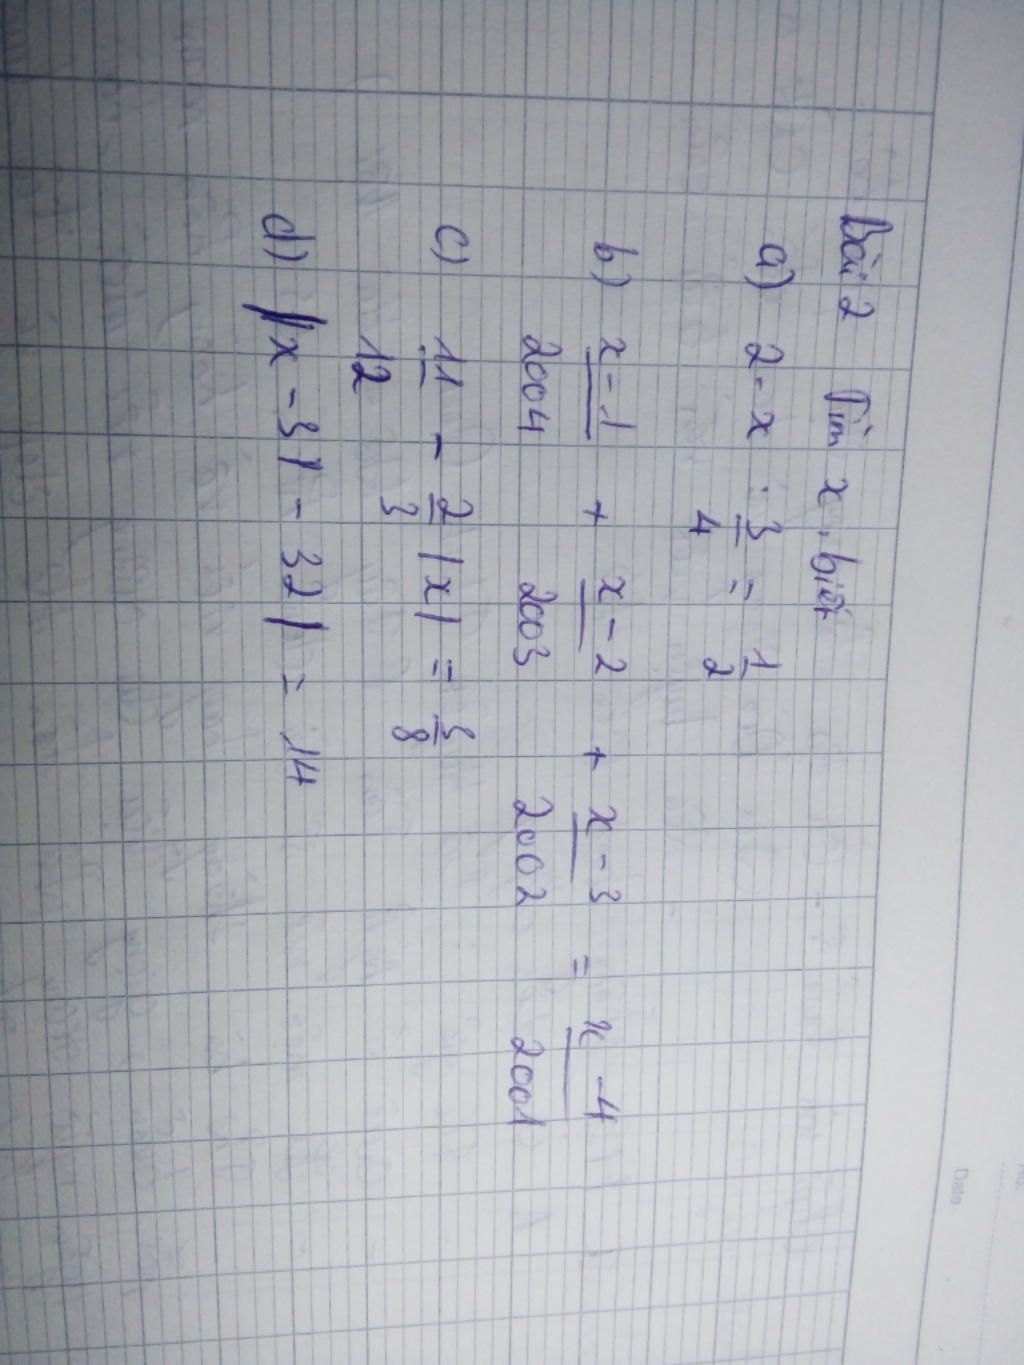 No.
Date
Bài 2 Tìm x, biết
a) 2 - x : 3/4 = 1/2
b) x-1/2004 + x-2/2003 + x-3/2002 = x-4/2001
c) 11/12 - 2/3 |x| = 5/8
d) ||x - 3| - 32| = 14